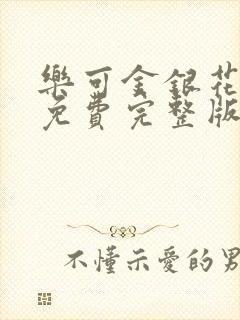 樂可金銀花
免費完整版
不懂示愛的男